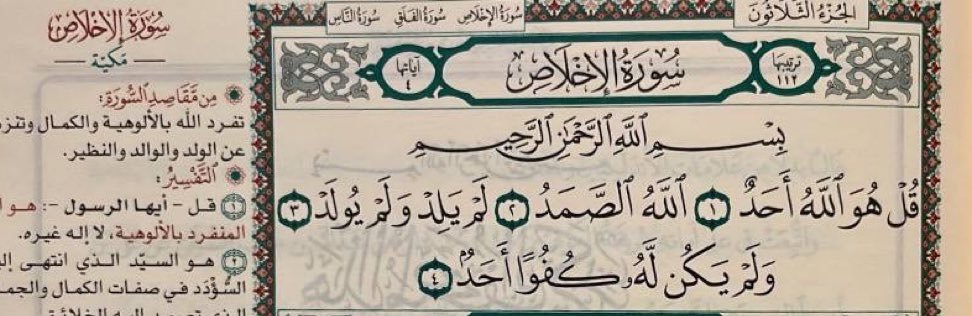 الجُزْءُ الثَّلَاثُونَ
سُورَةُ الإِخْلَاصِ سُورَةُ الفَلَقِ سُورَةُ النَّاسِ
ترتيبها ١١٢
سُورَةُ الإِخْلَاصِ
آياتها ٤
بِسْمِ ٱللَّهِ ٱلرَّحْمَٰنِ ٱلرَّحِيمِ
قُلْ هُوَ ٱللَّهُ أَحَدٌ ١ ٱللَّهُ ٱلصَّمَدُ ٢ لَمْ يَلِدْ وَلَمْ يُولَدْ ٣
وَلَمْ يَكُن لَّهُۥ كُفُوًا أَحَدٌۢ ٤
سُورَةُ الإِخْلَاصِ
— مَكِّيَّة —
مِن مَّقَاصِدِ السُّورَةِ:
تفرد الله بالألوهية والكمال
عن الولد والوالد والنظير.
التَّفْسِيرُ:
١ قل - أيها الرسول -: هو
المنفرد بالألوهية، لا إله غيره.
٢ هو السيّد الذي انتهى
السُّؤْدَد في صفات الكمال